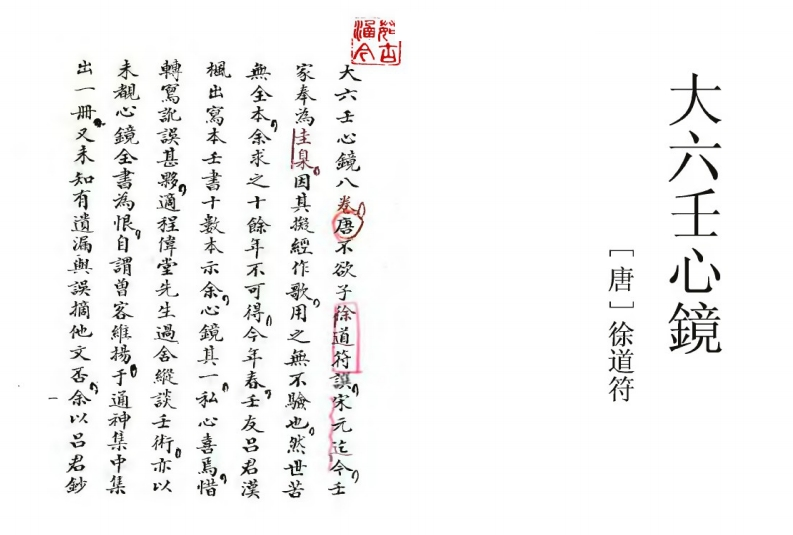 大六壬心鏡
［唐］徐道符
大六壬心鏡八卷唐不欲子徐道符譔宋元迄今壬
家奉為圭臬因其擬經作歌用之無不驗也然世苦
無全本余求之十餘年不可得今年春壬友呂君漢
楓出寫本壬書十數本示余心鏡其一私心喜焉惜
轉寫訛誤甚夥適程偉堂先生過舍縱談壬術亦以
未覩心鏡全書為恨自謂曾客維揚于通神集中集
出一冊又未知有遺漏與誤摘他文否余以呂君鈔